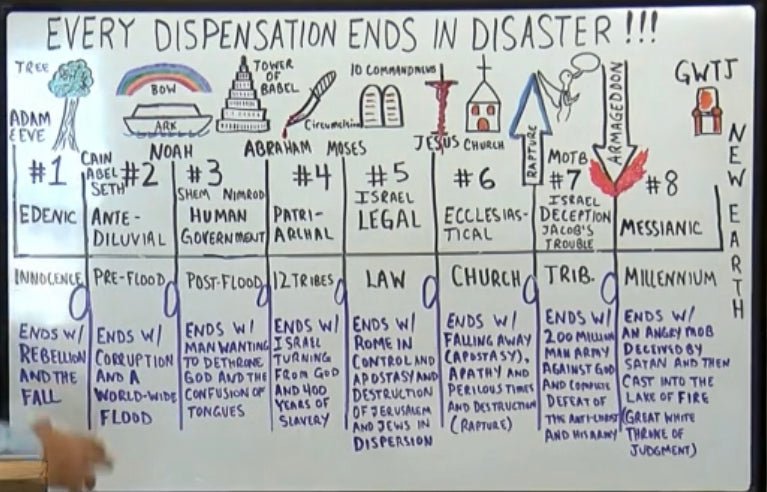 EVERY DISPENSATION ENDS IN DISASTER!!!
TREE
ADAM
& EVE
BOW
ARK
NOAH
TOWER
OF
BABEL
Circumcision
ABRAHAM
10 COMMANDMENTS
MOSES
JESUS
CHURCH
RAPTURE
MOTB
ARMAGEDDON
GWTJ
NEW EARTH
#1
EDENIC
CAIN
ABEL
SETH
#2
ANTE-
DILUVIAL
#3
SHEM NIMROD
HUMAN
GOVERNMENT
#4
PATRI-
ARCHAL
#5
ISRAEL
LEGAL
#6
ECCLESIAS-
TICAL
#7
ISRAEL
DECEPTION
JACOB'S
TROUBLE
#8
MESSIANIC
INNOCENCE
PRE-FLOOD
POST-FLOOD
12 TRIBES
LAW
CHURCH
TRIB.
MILLENNIUM
ENDS W/
REBELLION
AND THE
FALL
ENDS W/
CORRUPTION
AND A
WORLD-WIDE
FLOOD
ENDS W/
MAN WANTING
TO DETHRONE
GOD AND THE
CONFUSION OF
TONGUES
ENDS W/
ISRAEL
TURNING
FROM GOD
AND 400
YEARS OF
SLAVERY
ENDS W/
ROME IN
CONTROL AND
APOSTASY AND
DESTRUCTION
OF JERUSALEM
AND JEWS IN
DISPERSION
ENDS W/
FALLING AWAY
(APOSTASY),
APATHY AND
PERILOUS TIMES
AND DESTRUCTION
(RAPTURE)
ENDS W/
200 MILLION
MAN ARMY
AGAINST GOD
AND COMPLETE
DEFEAT OF
THE ANTI-CHRIST
AND HIS ARMY
ENDS W/
AN ANGRY MOB
DECEIVED BY
SATAN AND THEN
CAST INTO THE
LAKE OF FIRE
(GREAT WHITE
THRONE OF
JUDGMENT)